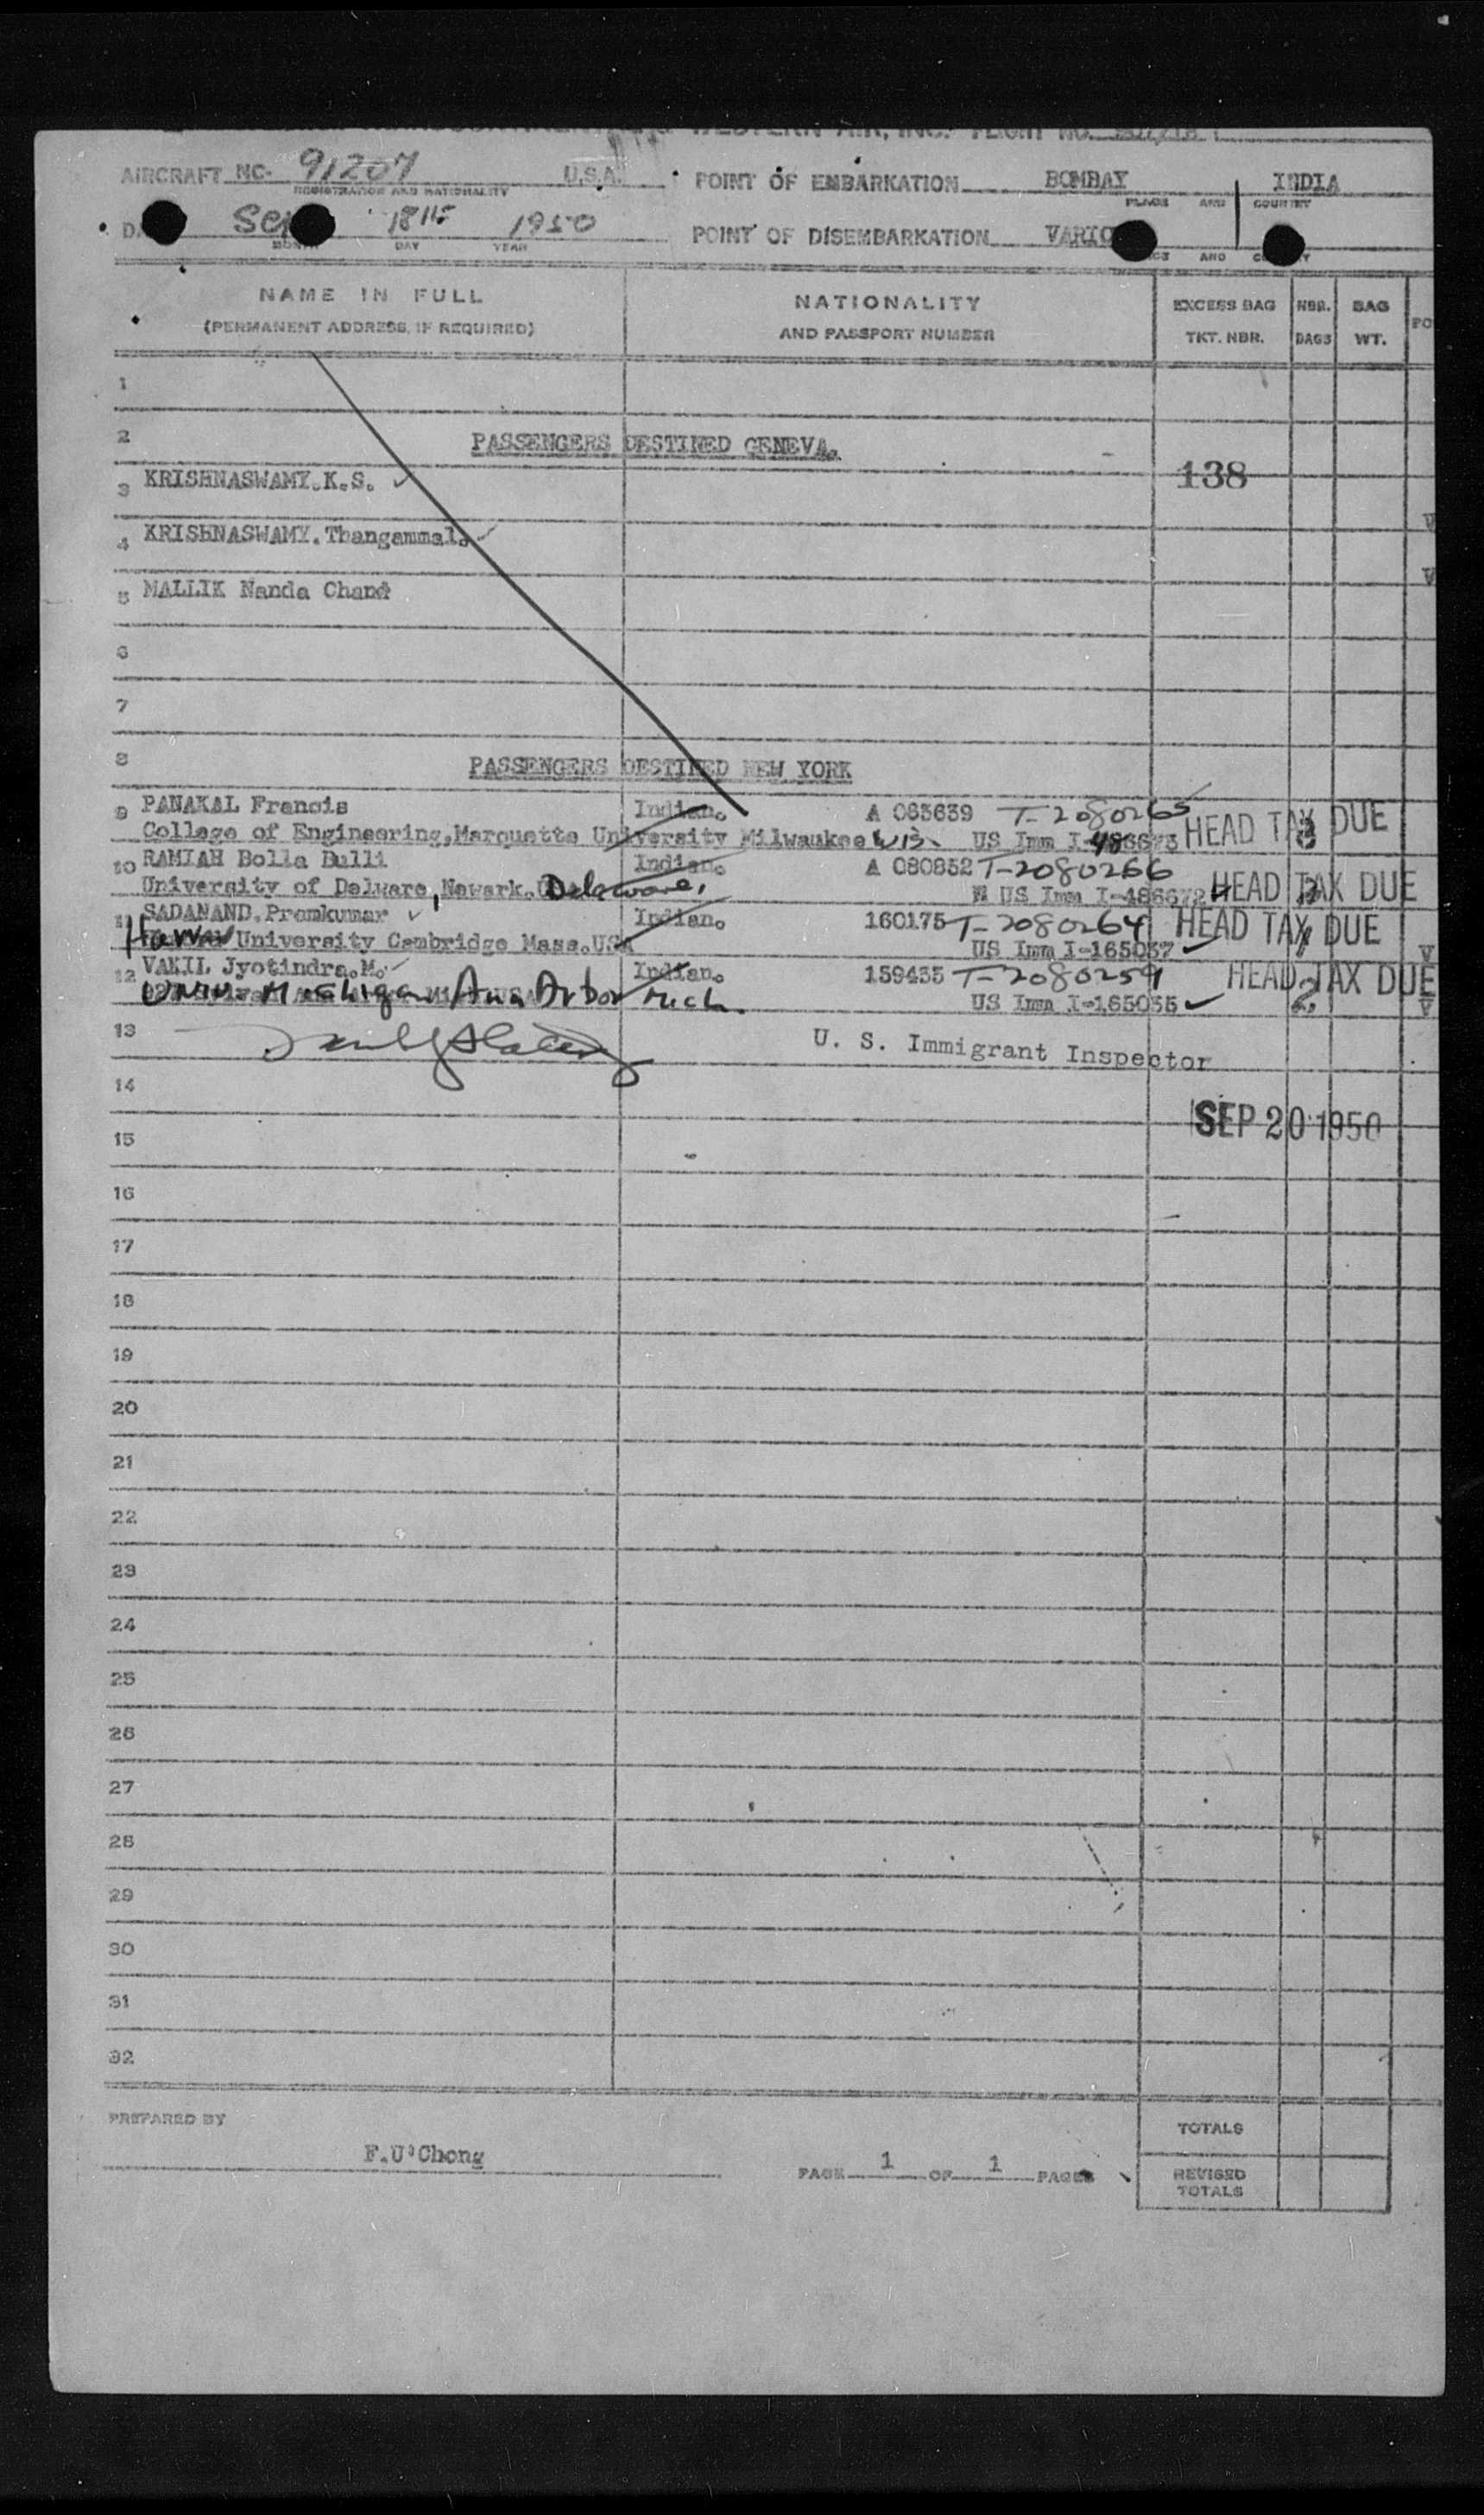 WESTERN AIR, INC. FLIGHT NO.
AIRCRAFT NC- 91207 U.S.A. POINT OF EMBARKATION BOMBAY INDIA
REGISTRATION AND NATIONALITY PLACE AND COUNTRY
18th 1950 POINT OF DISEMBARKATION
MONTH DAY YEAR AND
NAME IN FULL NATIONALITY EXCESS BAG NBR. BAG
(PERMANENT ADDRESS, IF REQUIRED) AND PASSPORT NUMBER TKT. NBR. BAGS WT.
1
2 PASSENGERS DESTINED GENEVA.
3 KRISHNASWAMY.K.S. 138
4 KRISHNASWAMY.Thangammal.
5 MALLIK Nanda Chand
6
7
8 PASSENGERS DESTINED NEW YORK
9 PANAKAL Francis Indian. A 063639 T-2080265 HEAD TAX DUE
College of Engineering,Marquette University Milwaukee Wis. US Imm
10 RAMIAH Bolla Bulli Indian. A 080852 T-2080266 HEAD TAX DUE
University of Delware, Newark. Delaware, US Imm I-486672
11 SADANAND.Premkumar Indian. 160175 T-2080264 HEAD TAX DUE
University Cambridge Mass.USA US Imm I-165037
12 VAKIL Jyotindra.M. Indian. 159435 T-2080259 HEAD TAX DUE
Univ. Michigan Ann Arbor Mich. US Imm I-165035
13 U. S. Immigrant Inspector
14
SEP 20 1950
15
16
17
18
19
20
21
22
23
24
25
26
27
28
29
30
31
32
PREPARED BY TOTALS
F.U'Chong PAGE 1 OF 1 PAGES REVISED
TOTALS